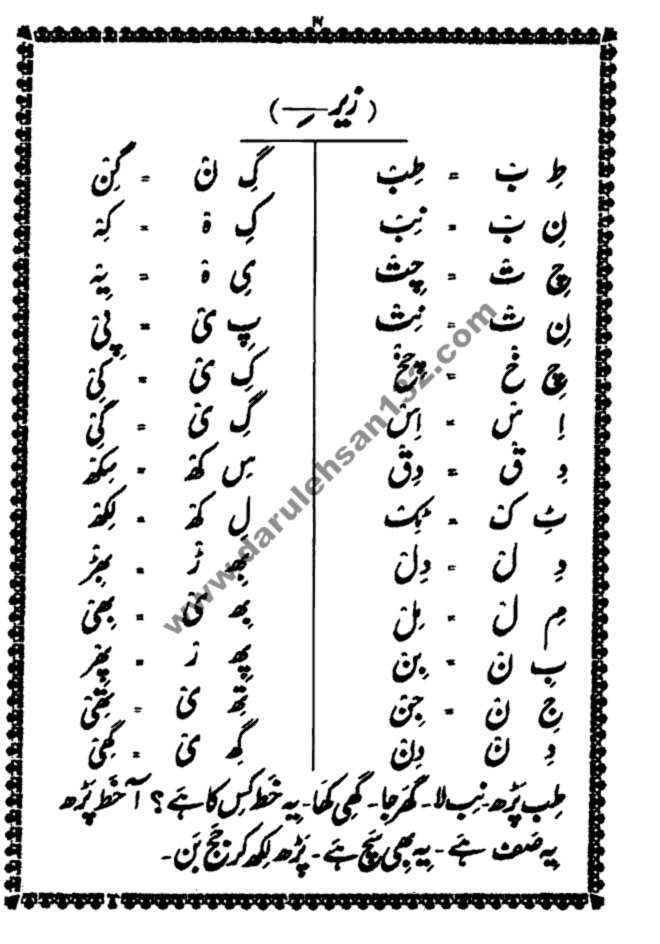 ۴
(زیر ــِـ)
طِ بْ = طِبْ
نِ بْ = نِبْ
چِ تْ = چِتْ
نِ تْ = نِتْ
چِ خْ = چِخْ
اِ سْ = اِسْ
دِ قْ = دِقْ
ٹِ کْ = ٹِکْ
دِ لْ = دِلْ
مِ لْ = مِلْ
بِ نْ = بِنْ
جِ نْ = جِنْ
دِ نْ دِنْ
گِ نْ = گِنْ
کِ ہْ = کِہْ
یِ ہْ = یِہْ
پِ یْ = پِیْ
کِ یْ = کِیْ
گِ یْ = گِیْ
سِ کھْ = سِکھْ
لِ کھْ = لِکھْ
بھِ ڑْ = بھِڑْ
بھِ یْ = بھِیْ
پھِ رْ = پھِرْ
تھِ یْ = تھِیْ
گھِ یْ = گھِیْ
طِب پَڑھ۔ نِب لا۔ گھَر جا۔ گھِی کھَا۔ یِہ خَط کِس کا ہَے؟ آ خَط پَڑھ
یِہ صَف ہَے۔ یِہ بھِی سَچ ہَے۔ پَڑھ لِکھ کر جَج بَن۔
www.darulehsan132.com